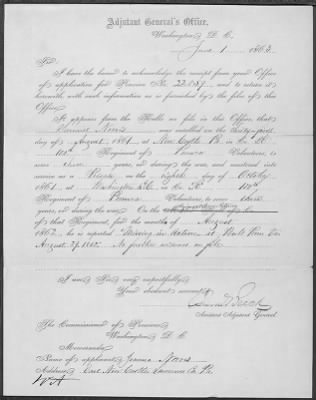 Adjutant General's Office,
Washington, D. C.
June 1 1863.
Sir:
I have the honor to acknowledge the receipt from your Office
of application for Pension No. 22,087, and to return it
herewith, with such information as is furnished by the files of this
Office.
It appears from the Rolls on file in this Office, that
Norris was enrolled on the thirty-first
day of August, 1861, at New Castle Pa. in Co. K,
100th Regiment of Penna Volunteers, to
serve three years, or during the war, and mustered into
service as a Private on the eighth day of October
1861, at Washington D.C., in Co. K, 100th
Regiment of Penna Volunteers, to serve three
years, or during the war. On the
of that Regiment, for the months of August
1862, he is reported "Missing in Action at Bull Run Va
August 29, 1862. No further evidence on file.
I am, Sir, very respectfully,
Your obedient servant,
Assistant Adjutant General.
The Commissioner of Pensions,
Washington, D. C.
Memoranda:
Name of applicant, Norris
Address, New Castle Lawrence Co Pa.